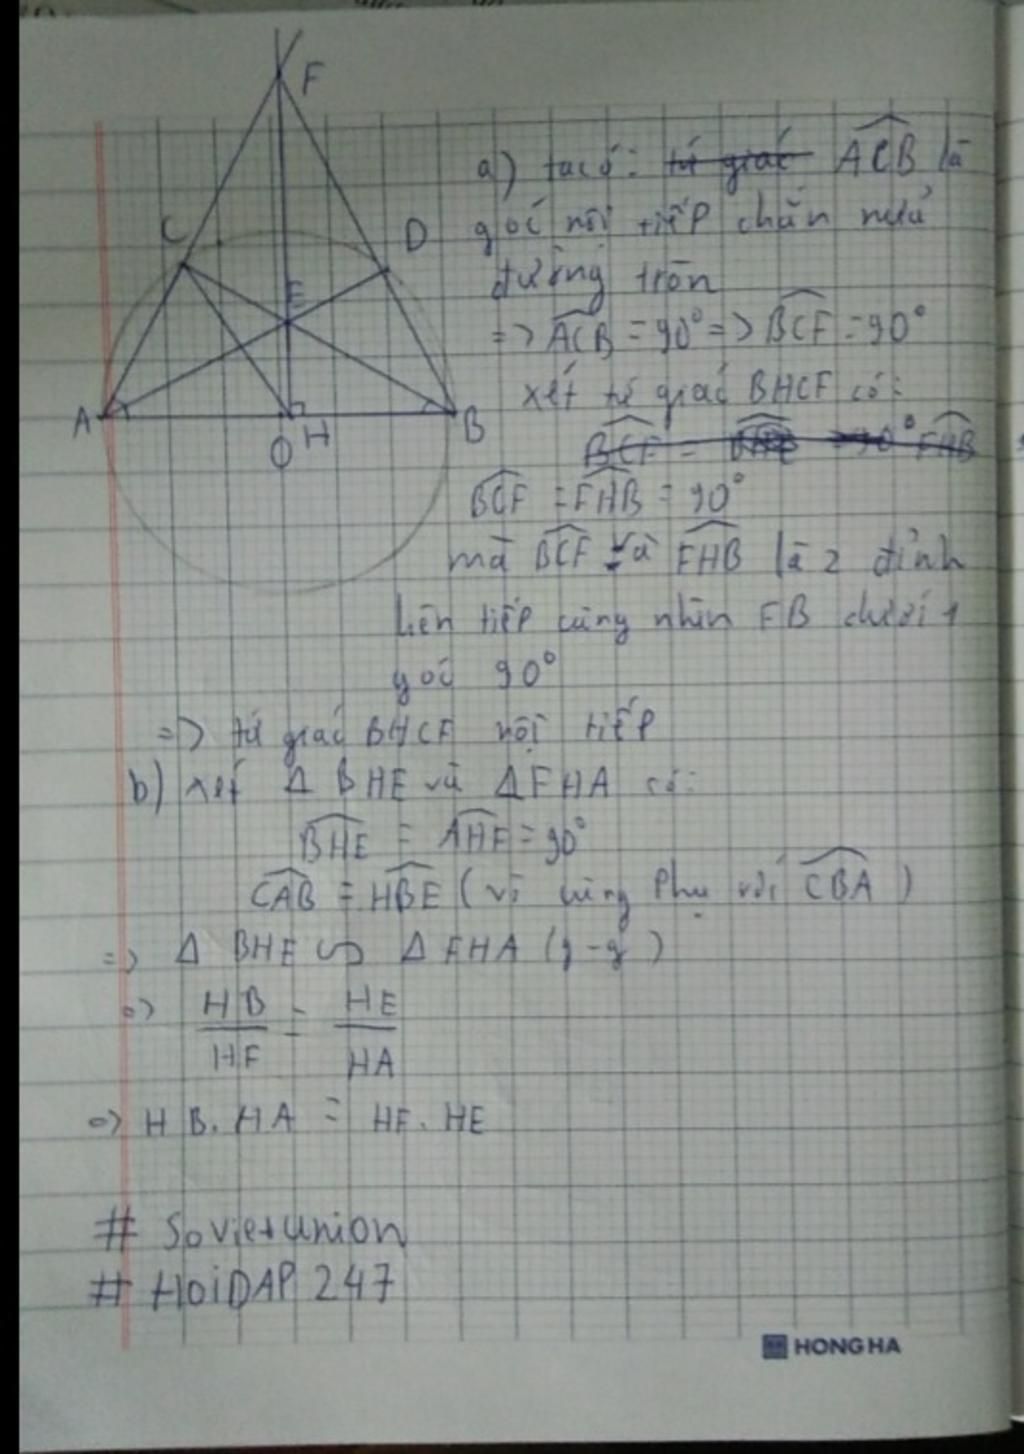 F
C
D
E
A
B
O
H
a) ta có: tứ giác ACB là
góc nội tiếp chắn nửa
đường tròn
=> ACB = 90° => BCF = 90°
xét tứ giác BHCF có:
BCF = 90° FHB
BCF = FHB = 90°
mà BCF và FHB là 2 đỉnh
liên tiếp cùng nhìn FB dưới 1
góc 90°
=> tứ giác BHCF nội tiếp
b) xét Δ BHE và Δ FHA có:
BHE = AHF = 90°
CAB = HBE (vì cùng phụ với CBA)
=> Δ BHE ∽ Δ FHA (g-g)
=> HB/HF = HE/HA
=> HB.HA = HF.HE
# Sovietunion
# HoiDAP 247
HONG HA